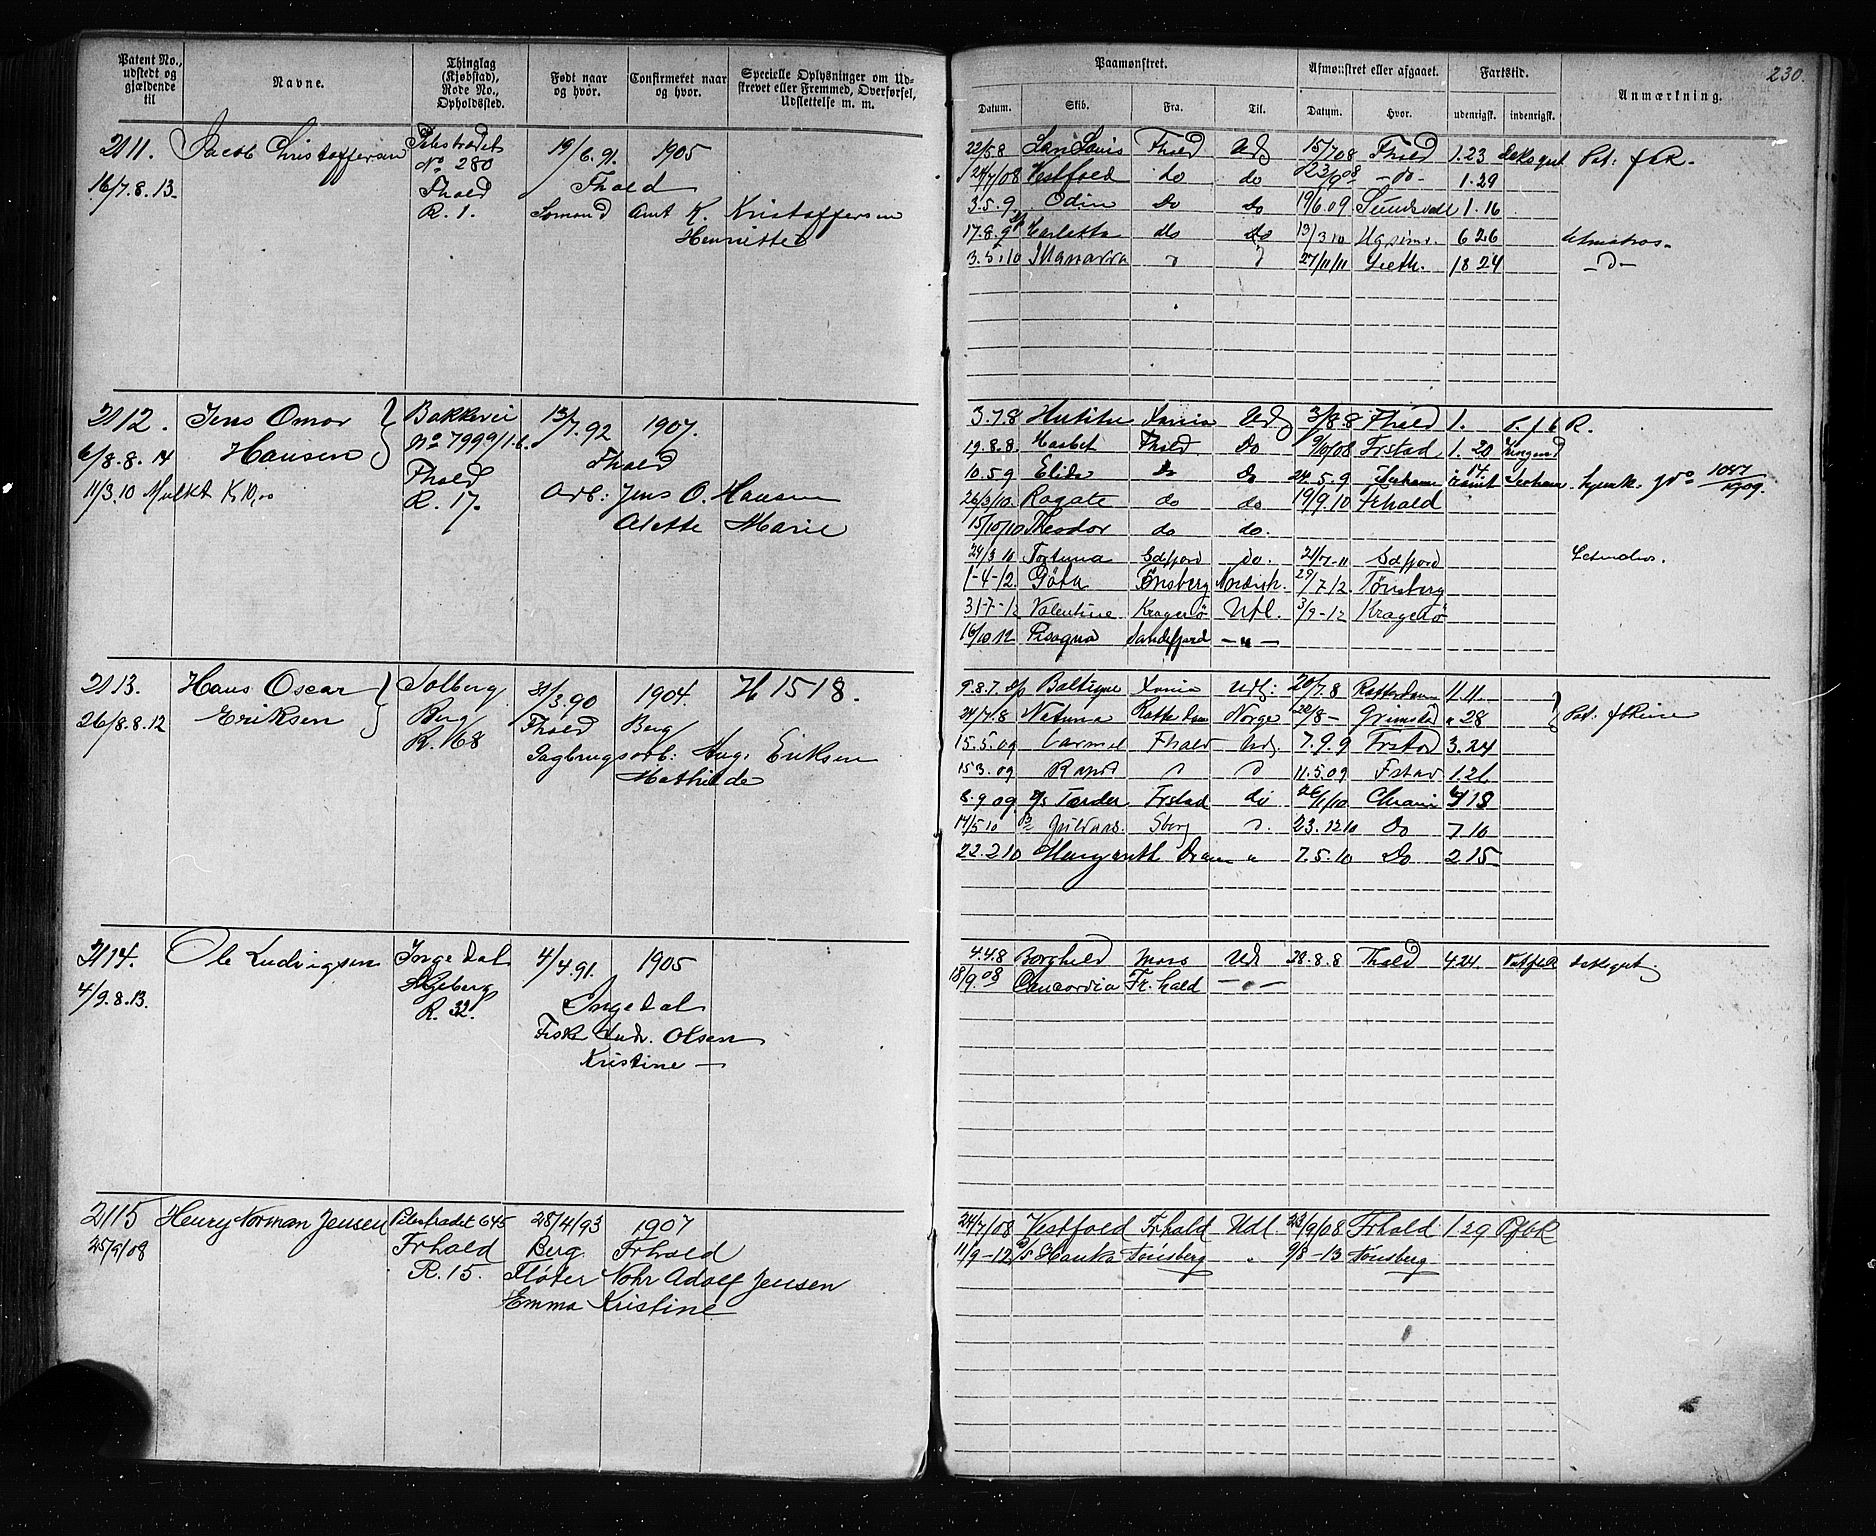 Patent No., udstedt og gjældende til
Navne.
Thinglag (Kjøbstad), Rode No., Opholdssted.
Født naar og hvor.
Confirmeret naar og hvor.
Specielle Oplysninger om Udskrevet eller Fremmed, Overførsel, Udslettelse m. m.
2111. Jacob Christoffersen
Pilestrædet No 280 Fhald R. 1.
19/6.91. 1905
16/7.8.13.
Fhald
Sømand Amt K. Kristoffersen
Henriette
2112. Jens Omar Hansen
Bakkevei
Fhald R. 17.
13/7.92 1907.
6/8.8.14
Fhald
11/3.10 Mulkt K 10,00
Arb: Jens O. Hansen
Alette Marie
2113. Hans Oscar Eriksen
Solberg Berg R. 168
31/3.90 1904. H 1518.
26/8.8.12
Fhald Berg
Sagbrugsarb: Aug. Eriksen
Mathilde
2114. Ole Ludvigsen
Ingedal
R. 32.
4/4.91. 1905
4/9.8.13.
Ingedal
Fisk Ludv. Olsen
Kristine
2115 Henry Norman Jensen
Pilestrædet 645 Frhald R. 15.
28/4/93 1907
25/9/08
Berg. Frhald
Fløter Nohr Adolf Jensen
Emma Kristine
230.
Paamønstret.
Afmønstret eller afgaaet.
Fartstid.
Anmærkning.
Datum. Skib. Fra. Til. Datum. Hvor. udenrigsk. indenrigsk.
22/5 8 San Louis Fhald Udl 15/7 08 Fhald 1.23 dæksgut Pat. f R.
24/7/08 Vestfold do do 23/9 08 - do - 1.29
3.5.9 Odin Do Do 19/6.09 Sundsvall 1.16
17.8.9 Carlotta do do 13/3 10 6 26
3.5.10 Manarra 27/11/11 Leith. 18 24
3.7.8 Udl 3/8 8 Fhald 1. R.
19.8.8. Fhald. Do 9/10/08 Frstad 1. 20
10.5 9 Elida Do Do 24.5.9 1047/1909.
26/3/10. Ragate do do 19/9.10 Frhald
15/10/10 Theodor do do.
24/3 10 Fortuna Sdfjord do. Sdfjord
1-4-12. Göta Tönsberg 29/7.12. Tönsberg
31-7-12 Valentine Kragerö Utl. 3/9-12 Kragerö
16/10 12 Pisagua Sandefjord - " -
9.8.7. Baltique Xania Udl. 20/7.8 Rotterdam 11.11.
24/7.8 Natuna Rotterdam Norge 22/8 - Grimstad " 28 Pat.
15.5.09 Carmel Fhald Udl. 7.9.9 Frstad 3.24
15 3.09 Rand 11.5.09 Fstad 1.26
8.9 09 Frstad do 26/1/10
14/5 10 Sborg 23.12 10 Do 7 10
22.2 10 Margareth Dram " 7.5.10 Do 2 15
4.4.8 Borghild Moss Udl 28.8.8 Fhald 4.24. dæksgut.
18/9.08 Concordia Fr.hald - " -
24/7/08 Vestfold Frhald Udl. 23/9/08 Frhald 1.29 PfbR
11/9-12 S/S Hauka Tönsberg " 9/8-13 Tönsberg